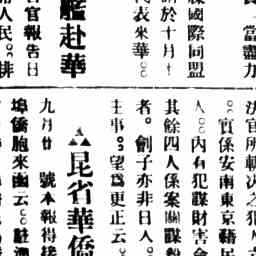 當盡力
國際同盟
請於十月十
代表來華。
艦赴華
官報告日
人民。排
決之犯人
。實係安南東京籍民
人。內有犯謀財害命
其餘四人係案關謀殺
者。劊子亦非日人。
主事。望爲更正云。
▲昆省華僑
九月廿 號本報得接
埠僑胞來函云。駐